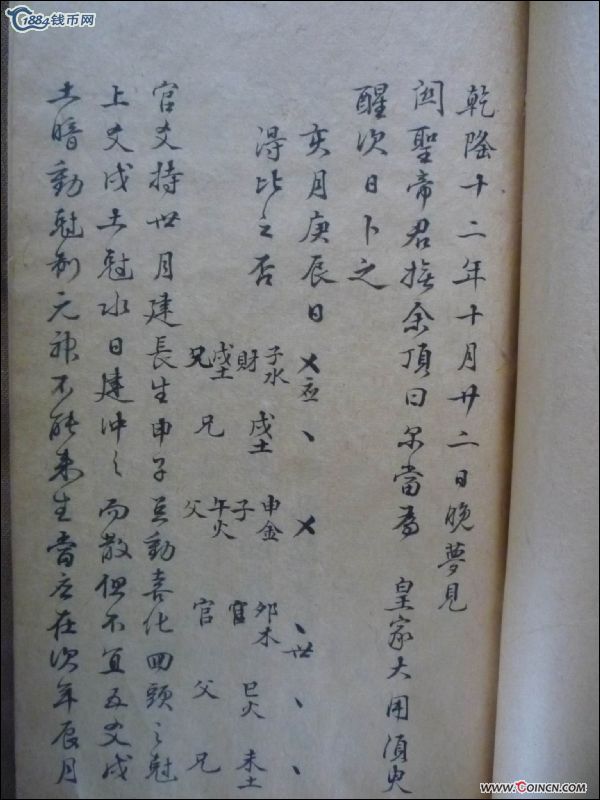 1884钱币网
乾隆十二年十月廿二日晚夢見
関聖帝君撫余頂曰尔當為 皇家大用須臾
醒次日卜之
亥月庚辰日 乂应 、 乂 、世 、 、
得比之否
子水 戌土 申金 卯木 巳火 未土
財 子 官
戌土 午火
兄 兄 父 官 父 兄
官爻持世月建長生申子動喜化回頭之尅
上爻戌土尅水日建冲之而散但不宜五爻戌
土暗動尅制元神不能来生當应在次年辰月
www.COINCN.com